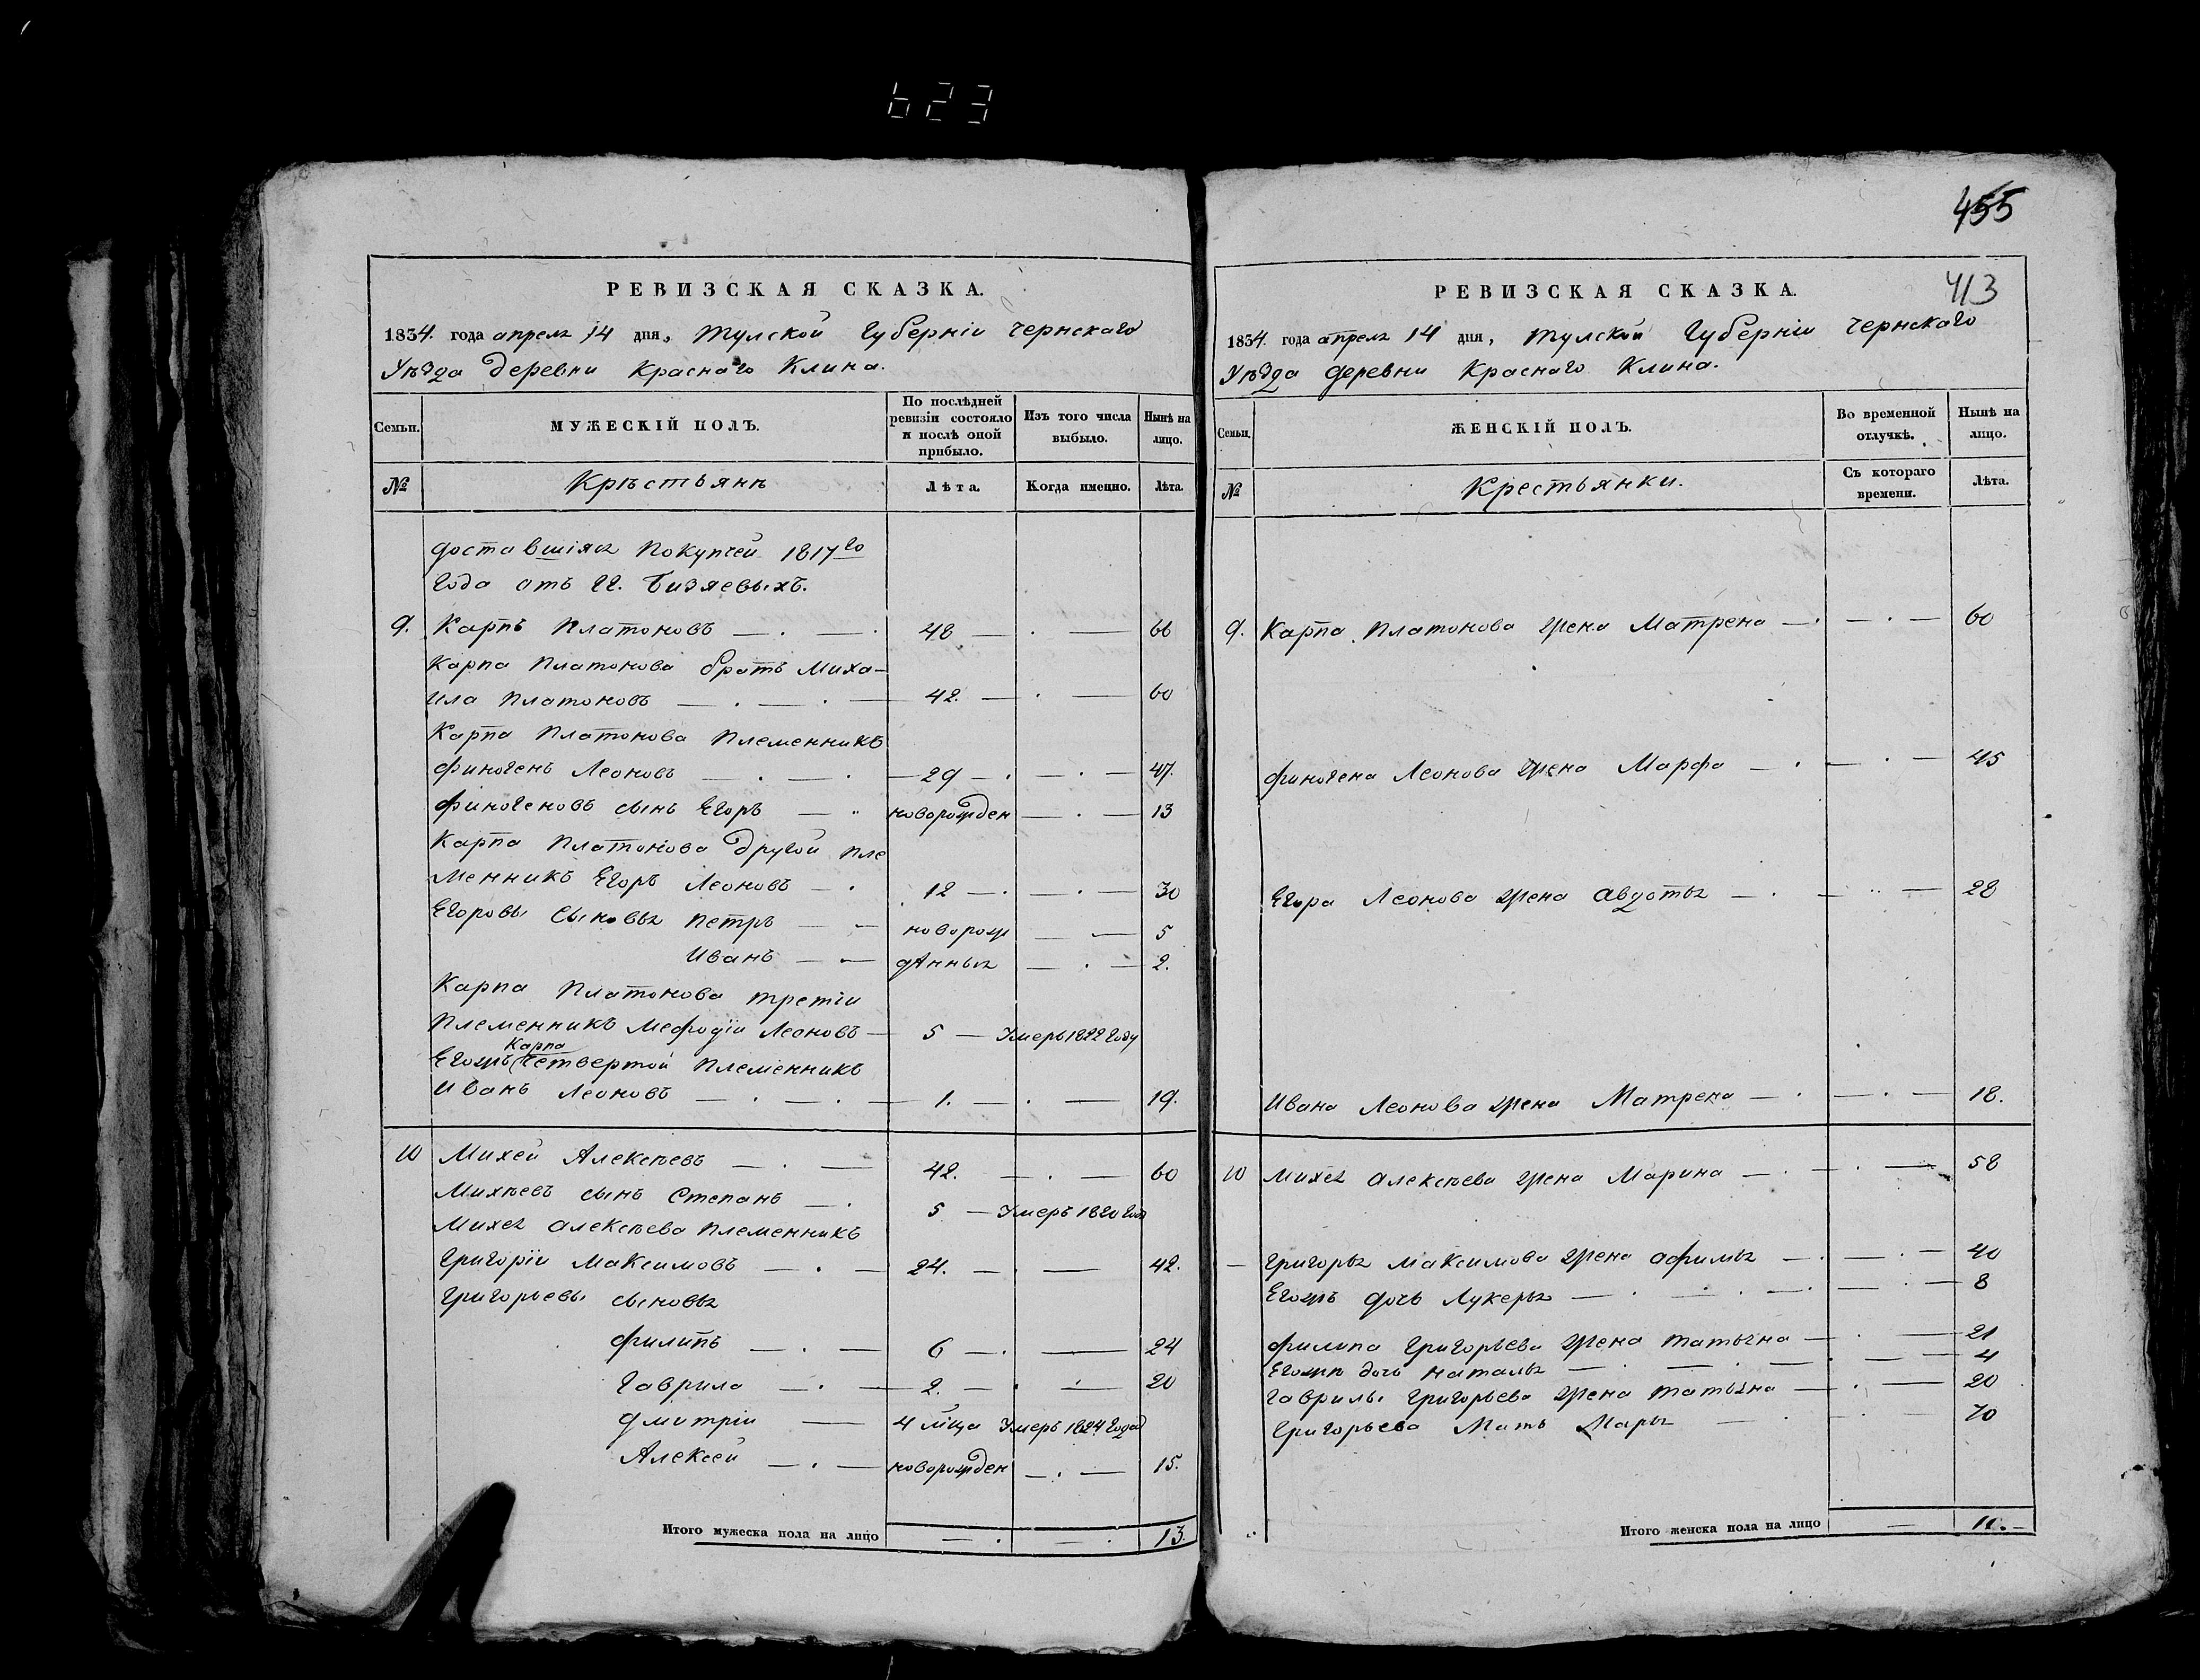 623
РЕВИЗСКАЯ СКАЗКА.
1834. года апреля 14 дня, Тулской Губерніи Чернскаго
Уѣзда деревни Краснаго Клина.
Семьи.
МУЖЕСКІЙ ПОЛЪ.
По послѣдней ревизіи состояло и послѣ оной прибыло.
Изъ того числа выбыло.
Нынѣ на лицо.
№
Крѣстьянѣ
Лѣта.
Когда именно.
Лѣта.
доставшіяся Покупчей 1817го
года отъ Гг.
9. Карпъ Платоновъ 48 66
Карпа Платонова братъ Миха-
ила Платоновъ 42. 60
Карпа Платонова Племенникъ
Финогенъ Леоновъ 29 47.
Финогеновъ сынъ Егоръ новорожден 13
Карпа Платонова другой пле
менникъ Егоръ Леоновъ 12 30
Егоровы сыновья Петръ новорож 5
Иванъ дЕнныя 2.
Карпа Платонова третіи
Племенникъ Мефодіи Леоновъ 5 Умеръ 1822 году
Карпа
Егожъ Четвертой Племенникъ
Иванъ Леоновъ 1. 19.
10 Михей Алексѣевъ 42. 60
Михѣевъ сынъ Степанъ 5 Умеръ 1820 год
Михея Алексѣева Племенникъ
Григоріи Максимовъ 24. 42.
Григорьевы сыновья
Филипъ 6 24
Гаврила 2. 20
Дмитріи 4 мѣца Умеръ 1824 года
Алексей новорожден 15.
Итого мужеска пола на лицо 13.
455
413
РЕВИЗСКАЯ СКАЗКА.
1834. года апреля 14 дня, Тулской Губерніи Чернскаго
Уѣзда деревни Краснаго Клина.
Семьи.
ЖЕНСКІЙ ПОЛЪ.
Во временной отлучкѣ.
Нынѣ на лицо.
№
Крестьянки.
Съ котораго времени.
Лѣта.
9. Карпа Платонова жена Матрена 60
Финогена Леонова жена Марфа 45
Егора Леонова жена Авдотья 28
Ивана Леонова жена Матрена 18.
10 Михея Алексѣева жена Марина 58
Григорья Максимова жена Афимья 40
Егожъ дочь Лукерья 8
Филипа Григорьева жена Татьяна 21
Егожъ дочь Наталья 4
Гаврилы Григорьева жена Татьяна 20
Григорьева Мать Марья 70
Итого женска пола на лицо